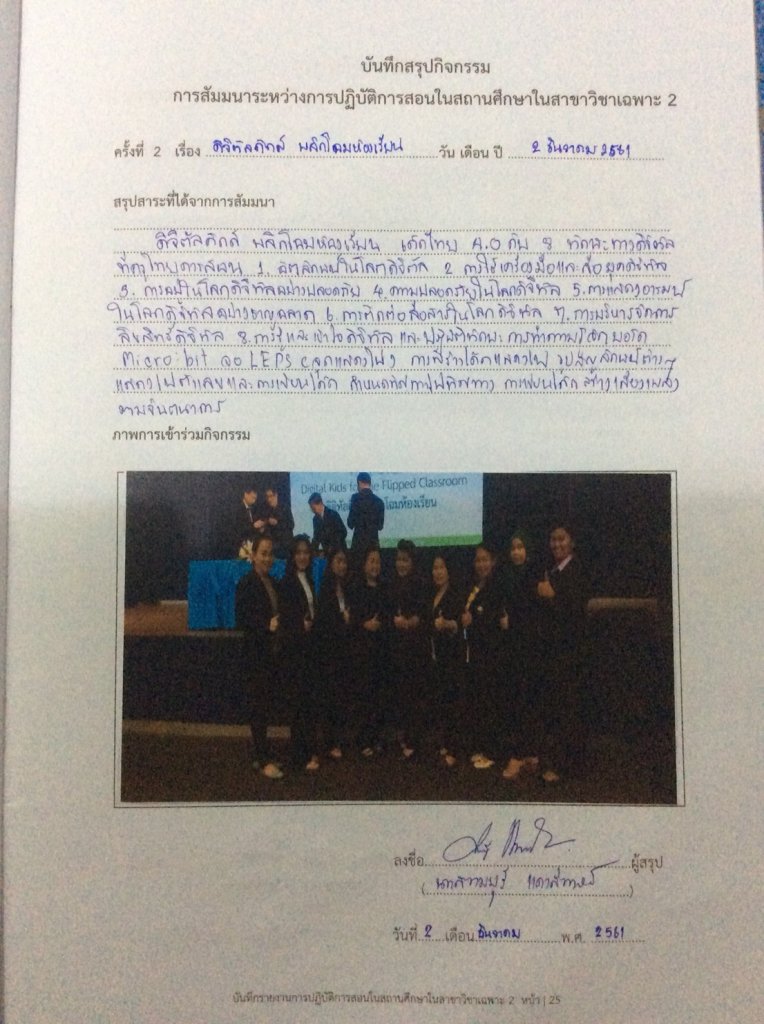 บันทึกสรุปกิจกรรม
การสัมมนาระหว่างการปฏิบัติการสอนในสถานศึกษาในสาขาวิชาเฉพาะ 2
ครั้งที่ 2 เรื่อง ดิจิทัลคิดส์ พลิกโฉมห้องเรียน วัน เดือน ปี 2 ธันวาคม 2561
สรุปสาระที่ได้จากการสัมมนา
ดิจิตัลคิดส์ พลิกโฉมห้องเรียน เด็กไทย 4.0 กับ 8 ทักษะทางดิจิทัล
1. อัตลักษณ์ในโลกดิจิทัล 2. การใช้เครื่องมือและสื่อยุคดิจิทัล
3. การอยู่ในโลกดิจิทัลอย่างปลอดภัย 4. ความปลอดภัยในโลกดิจิทัล 5. การแสดงอารมณ์
ในโลกดิจิทัลอย่างชาญฉลาด 6. การติดต่อสื่อสารในโลกดิจิทัล 7. การบริหารจัดการ
ลิขสิทธิ์ดิจิทัล 8. การรู้และเข้าใจดิจิทัล และปฏิบัติทักษะ การทำความรู้จักบอร์ด
Micro:bit จอ LEPS การสร้างโค้ดแสดงไฟ รูปสัญลักษณ์ต่างๆ
แสดงไฟตัวเลขและการเขียนโค้ด การเขียนโค้ด สร้างเสียงเพลง
ตามจินตนาการ
ภาพการเข้าร่วมกิจกรรม
Digital Kids fo e Flipped Classroom
โฉมห้องเรียน
ลงชื่อ ผู้สรุป
วันที่ 2 เดือน ธันวาคม พ.ศ. 2561
บันทึกรายงานการปฏิบัติการสอนในสถานศึกษาในสาขาวิชาเฉพาะ 2 หน้า | 25